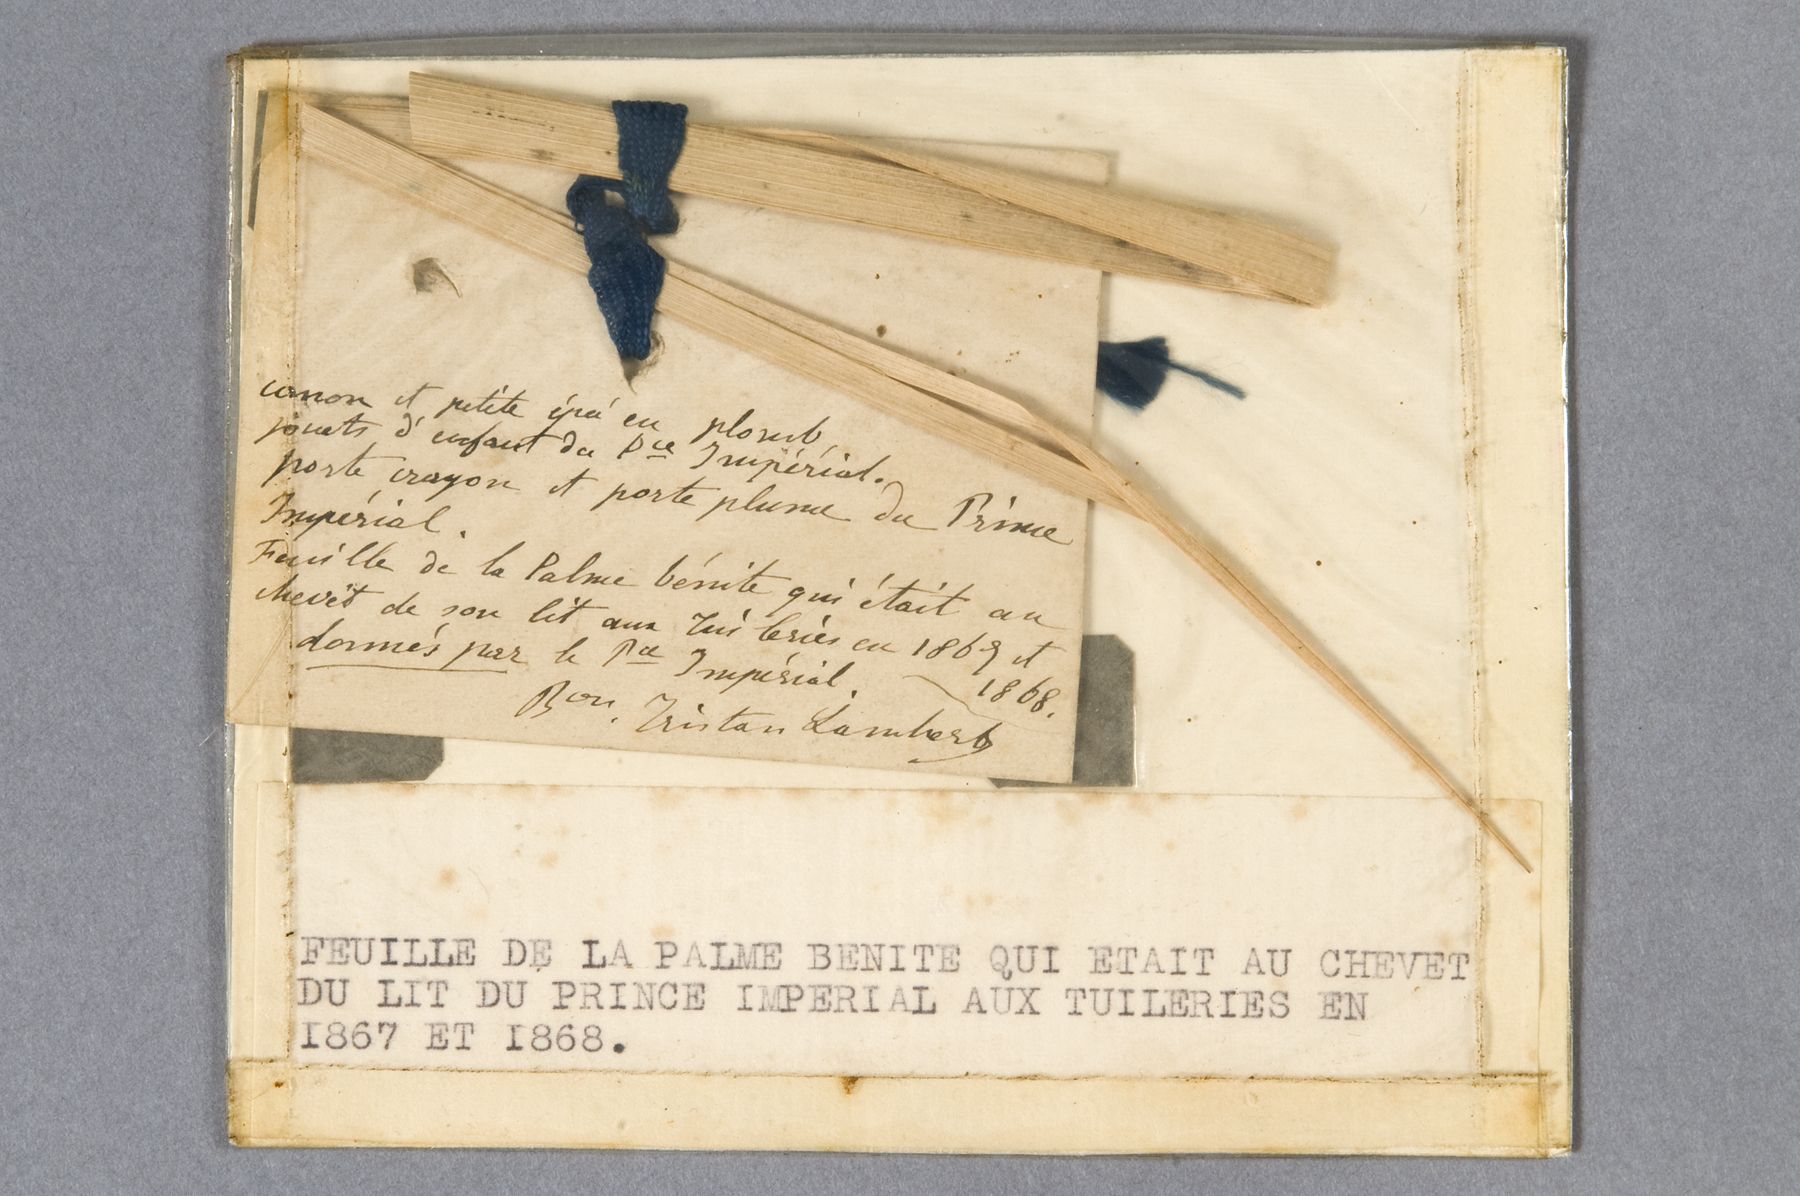 canon et petite épée en plomb
jouets d'enfant du Pce Impérial.
porte crayon et porte plume du Prince
Impérial.
Feuille de la Palme bénite qui était au
chevet de son lit aux Tuileries en 1867 et
1868.
donnés par le Pce Impérial.
Bon. Tristan Lambert
FEUILLE DE LA PALME BENITE QUI ETAIT AU CHEVET
DU LIT DU PRINCE IMPERIAL AUX TUILERIES EN
1867 ET 1868.